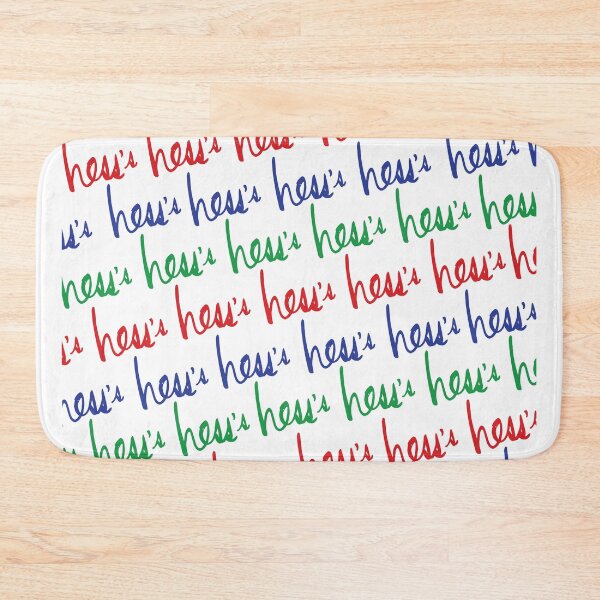 hess's hess's hess's
s's hess's hess's hess's hess's hess's
ess's hess's hess's hess's hess's hess
s's hess's hess's hess's hess's hess's he
ess's hess's hess's hess's hess's hess's
hess's hess's hess's hess's hess's he
hess's hess's hess's